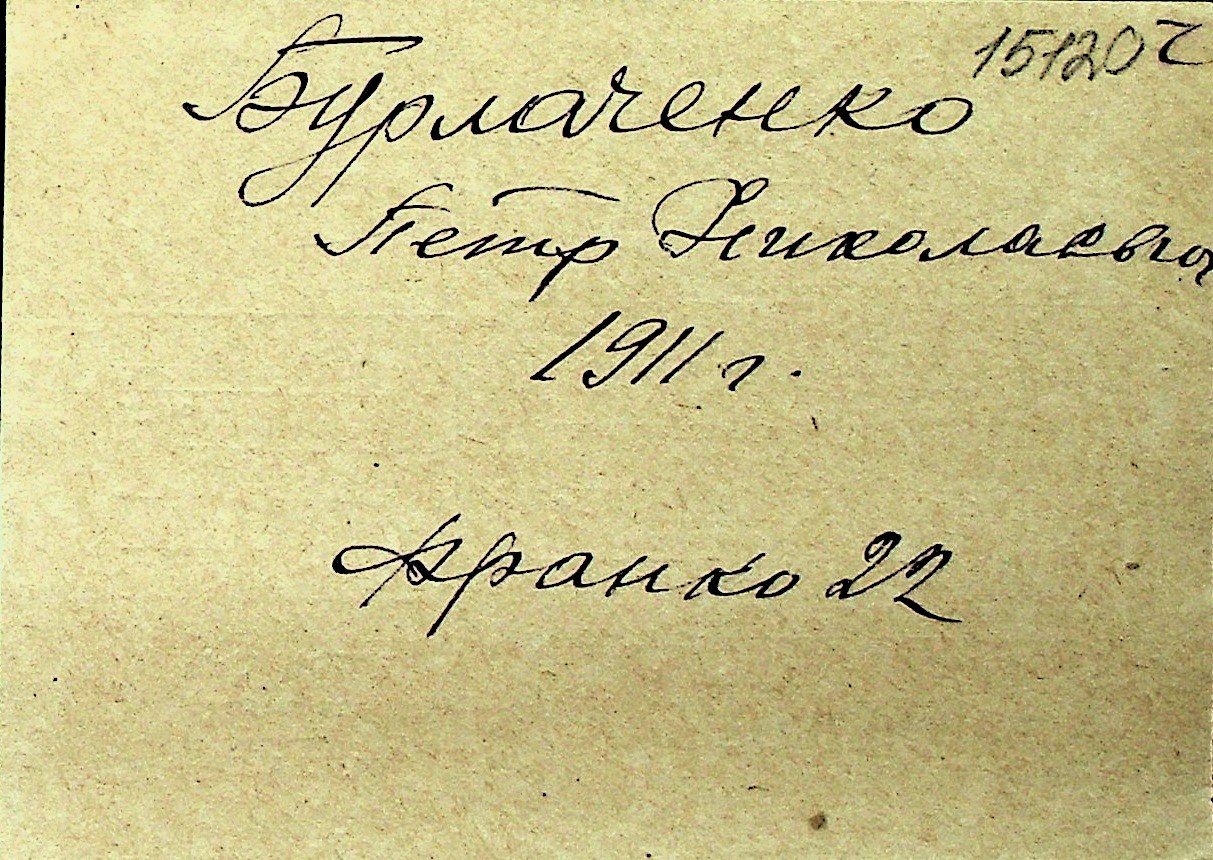 15120 г
Бурлаченко
Петр Николаевич
1911 г.
Франко 22